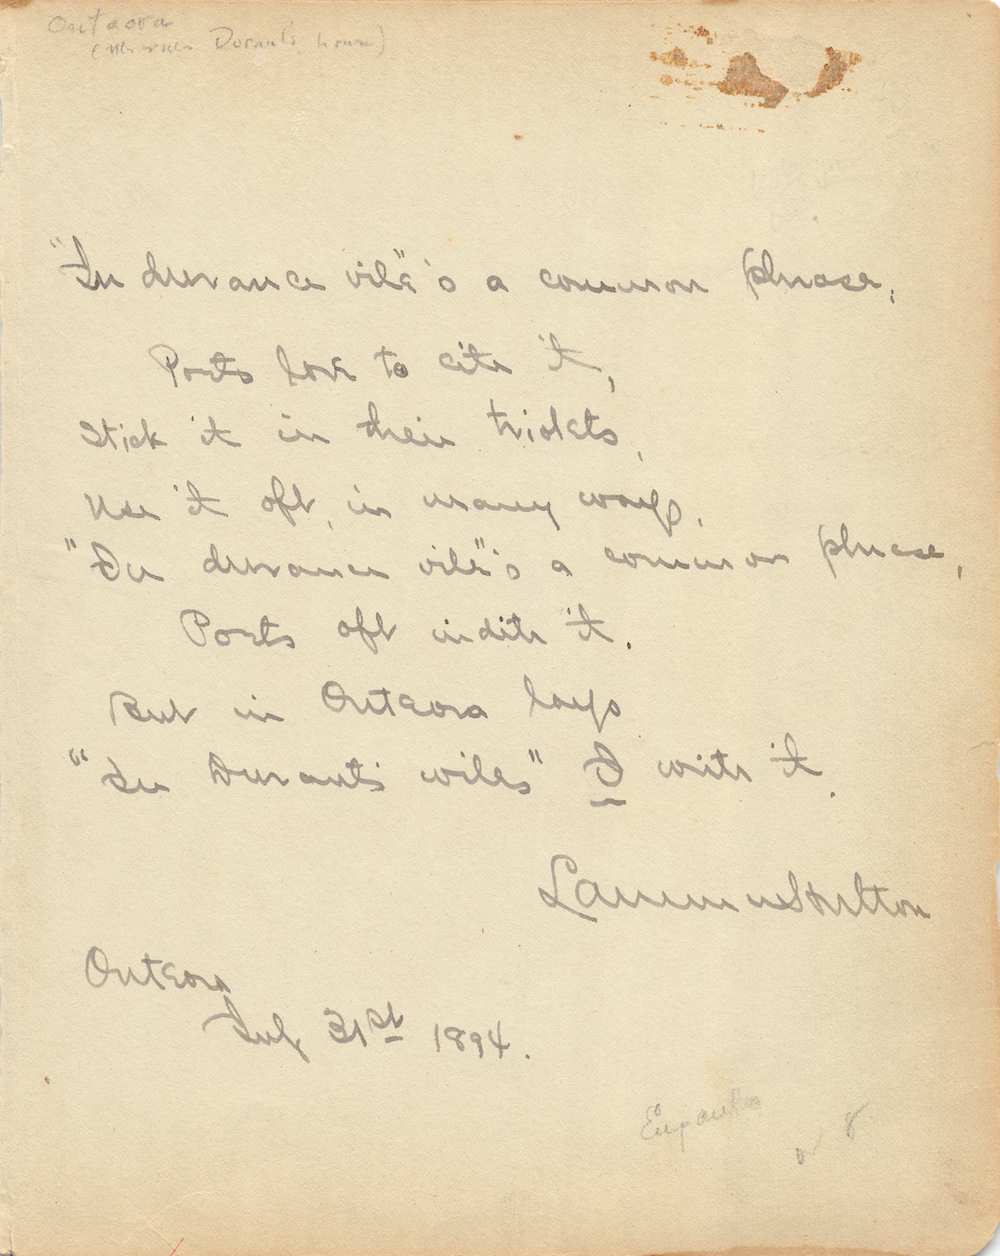 Onteora
Durant's house)
"In durance vile"'s a common phrase,
Poets love to cite it,
Stick it in their triolets,
Use it oft, in many ways.
"In durance vile"'s a common phrase,
Poets oft indite it.
But in Onteora lays
"In Durant's wiles" I write it.
Laurence Hutton
Onteora
July 31st 1894.